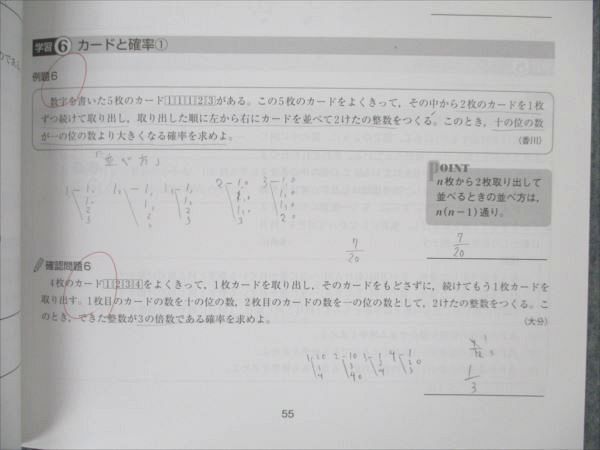 学習6 カードと確率①
例題6
数字を書いた5枚のカード[1][1][1][2][3]がある。この5枚のカードをよくきって，その中から2枚のカードを1枚
ずつ続けて取り出し，取り出した順に左から右にカードを並べて2けたの整数をつくる。このとき，十の位の数
が一の位の数より大きくなる確率を求めよ。
(香川)
「並べ方」
POINT
n枚から2枚取り出して
並べるときの並べ方は，
n(n−1)通り。
7/20
7/20
確認問題6
4枚のカード[1][2][3][4]をよくきって，1枚カードを取り出し，そのカードをもどさずに，続けてもう1枚カードを
取り出す。1枚目のカードの数を十の位の数，2枚目のカードの数を一の位の数として，2けたの整数をつくる。こ
のとき，できた整数が3の倍数である確率を求めよ。
(大分)
1/3
55